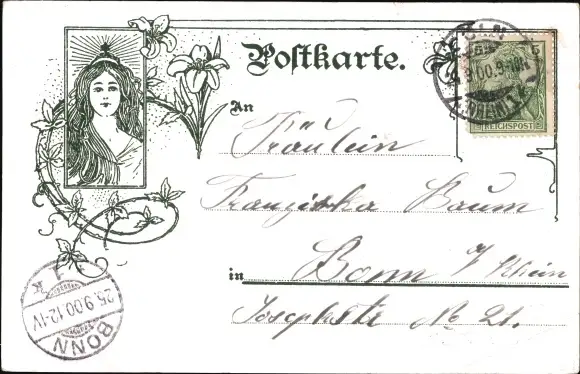 Postkarte.
An
Fräulein
Franziska Baum
in Bonn a/Rhein
Josephstr No 21.
5 5
REICHSPOST
CÖLN
9.00.9-10N
(RHEIN) 1
BONN
25.9.00.12-1V
1